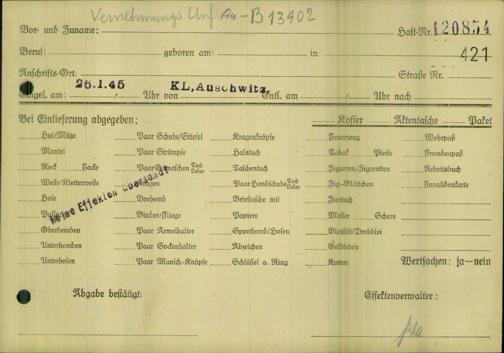 Vernehmungs Unf Au-B 13402
Vor- und Zuname: Haft-Nr. 120854
Beruf: geboren am: in: 421
Anschrifts-Ort: Straße Nr.
Eingel. am 26.1.45 Uhr von KL, Auschwitz, Entl. am / Uhr nach
Bei Einlieferung abgegeben: Koffer Aktentasche Paket
Hut/Mütze Paar Schuhe/Stiefel Kragenknöpfe Feuerzeug Wehrpaß
Mantel Paar Strümpfe Halstuch Tabak Pfeife Fremdenpaß
Rock Jacke Paar Gamaschen Tuch Leder Taschentuch Zigarren/Zigaretten Arbeitsbuch
Weste/Kletterweste Kragen Paar Handschuhe Tuch Leder Zig.-Blättchen Invalidenkarte
Hose Vorhemd Brieftasche mit Ziertuch
Pullover Binder/Fliege Papiere Messer Schere
Oberhemden Paar Ärmelhalter Sporthemd/Hosen Bleistift/Drehblei
Unterhemden Paar Sockenhalter Abzeichen Geldbörse
Unterhosen Paar Mansch.-Knöpfe Schlüssel a. Ring Kamm Wertsachen: ja—nein
Keine Effekten übersandt
Abgabe bestätigt: Effektenverwalter: